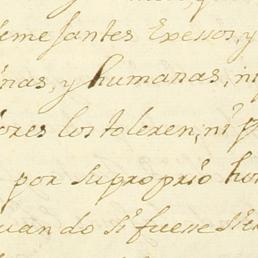 semejantes Excessos, y
inas, y humanas, ni
ores los toleren, ni p
por su proprio ho
uando si fuese sie